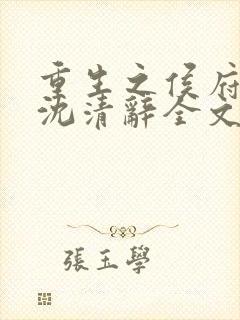 重生之侯府
沈清辭全文
張玉學